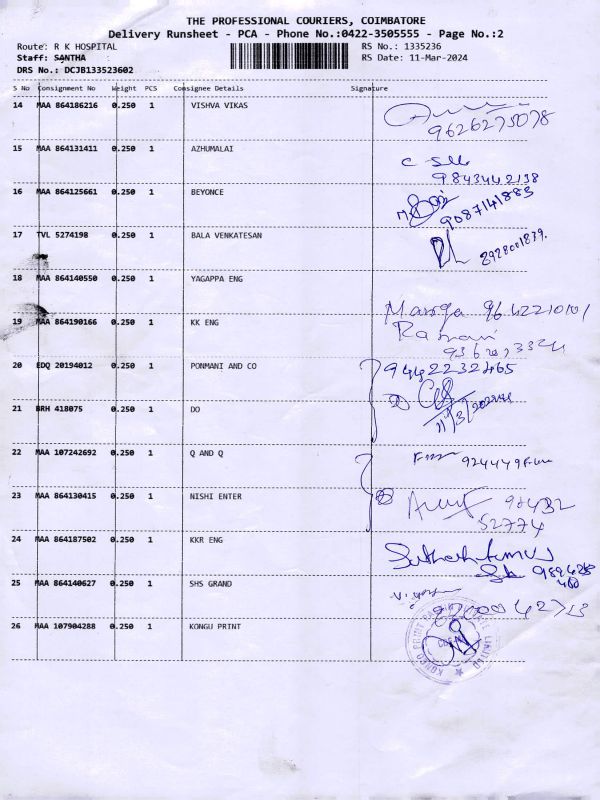 THE PROFESSIONAL COURIERS, COIMBATORE
Delivery Runsheet - PCA - Phone No.:0422-3505555 - Page No.:2
Route: R K HOSPITAL
RS No.: 1335236
Staff: SANTHA
RS Date: 11-Mar-2024
DRS No.: DCJB133523602
S No Consignment No Weight PCS Consignee Details Signature
14 MAA 864186216 0.250 1 VISHVA VIKAS
9626275078
15 MAA 864131411 0.250 1 AZHUMALAI
9843442138
16 MAA 864125661 0.250 1 BEYONCE
9087141883
17 TVL 5274198 0.250 1 BALA VENKATESAN
8928001839.
18 MAA 864140550 0.250 1 YAGAPPA ENG
19 MAA 864190166 0.250 1 KK ENG
20 EDQ 20194012 0.250 1 PONMANI AND CO
21 BRH 418075 0.250 1 DO
22 MAA 107242692 0.250 1 Q AND Q
23 MAA 864130415 0.250 1 NISHI ENTER
52774
24 MAA 864187502 0.250 1 KKR ENG
25 MAA 864140627 0.250 1 SHS GRAND
26 MAA 107904288 0.250 1 KONGU PRINT